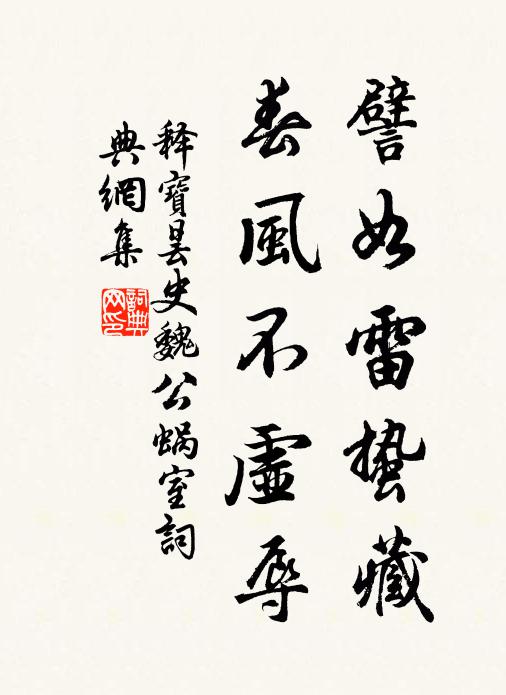 譬如雷蛰藏
春風不虛辱
释寶昙史魏公蜗室詞
典網集
詞典网印